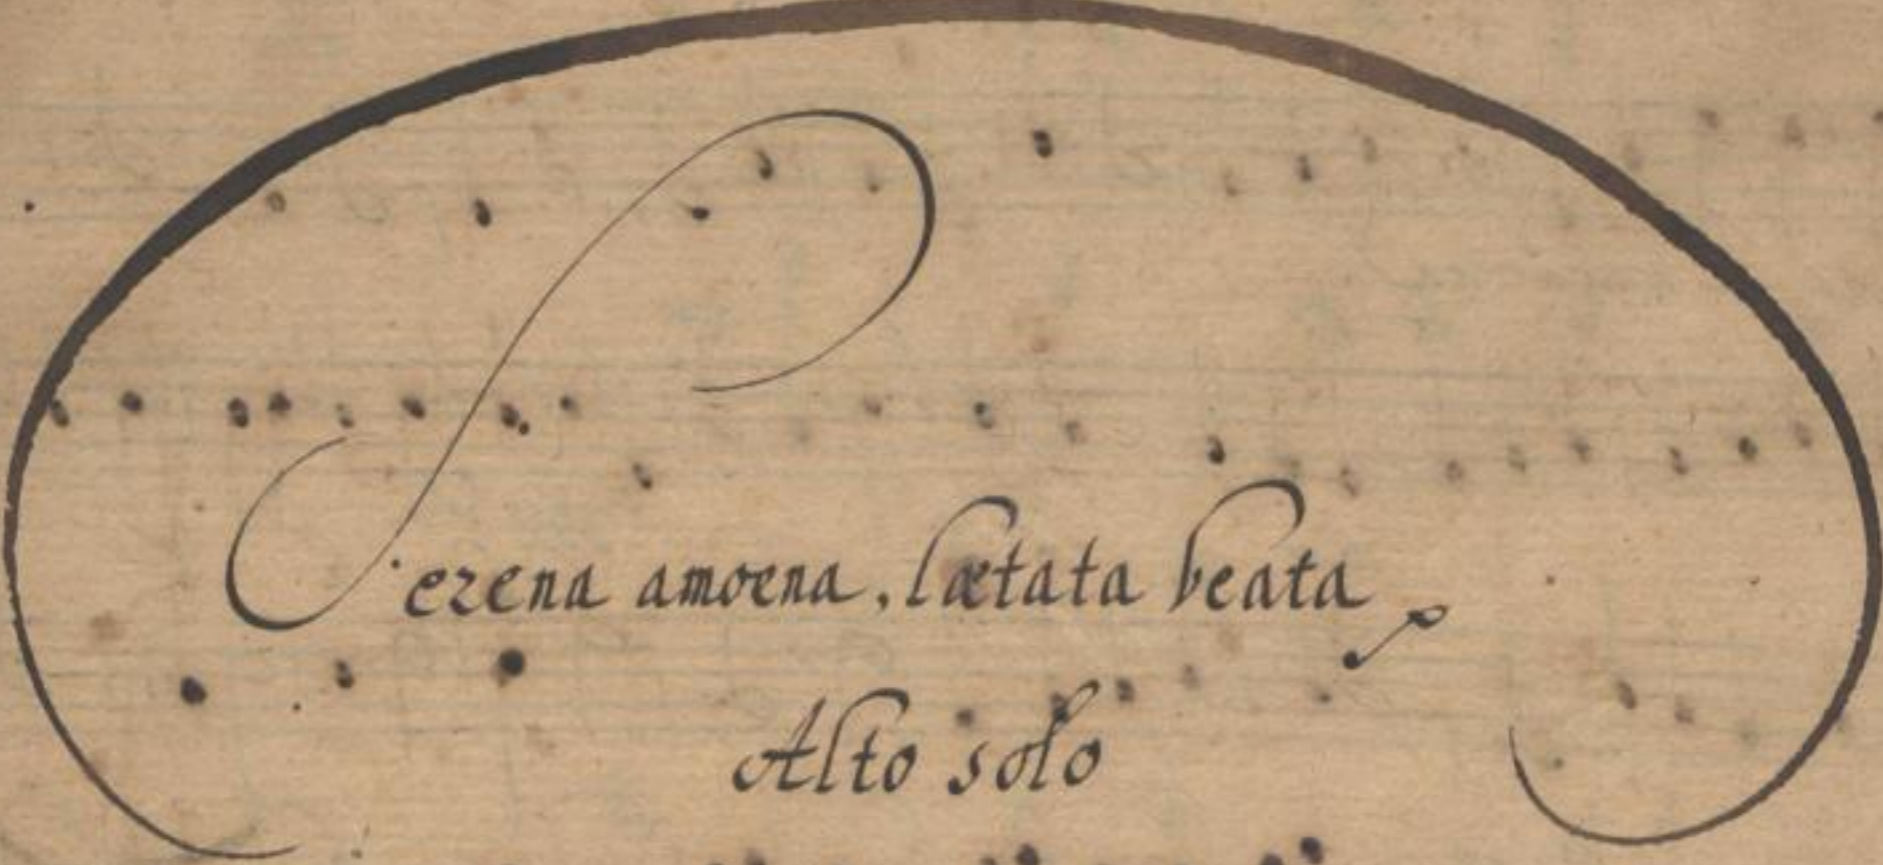 Serena amoena, lætata beata
Alto solo